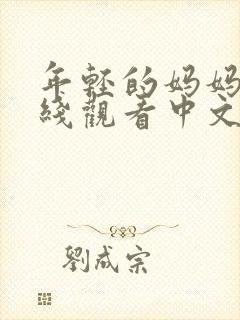 年轻的妈妈
綫觀看中文
劉成宗